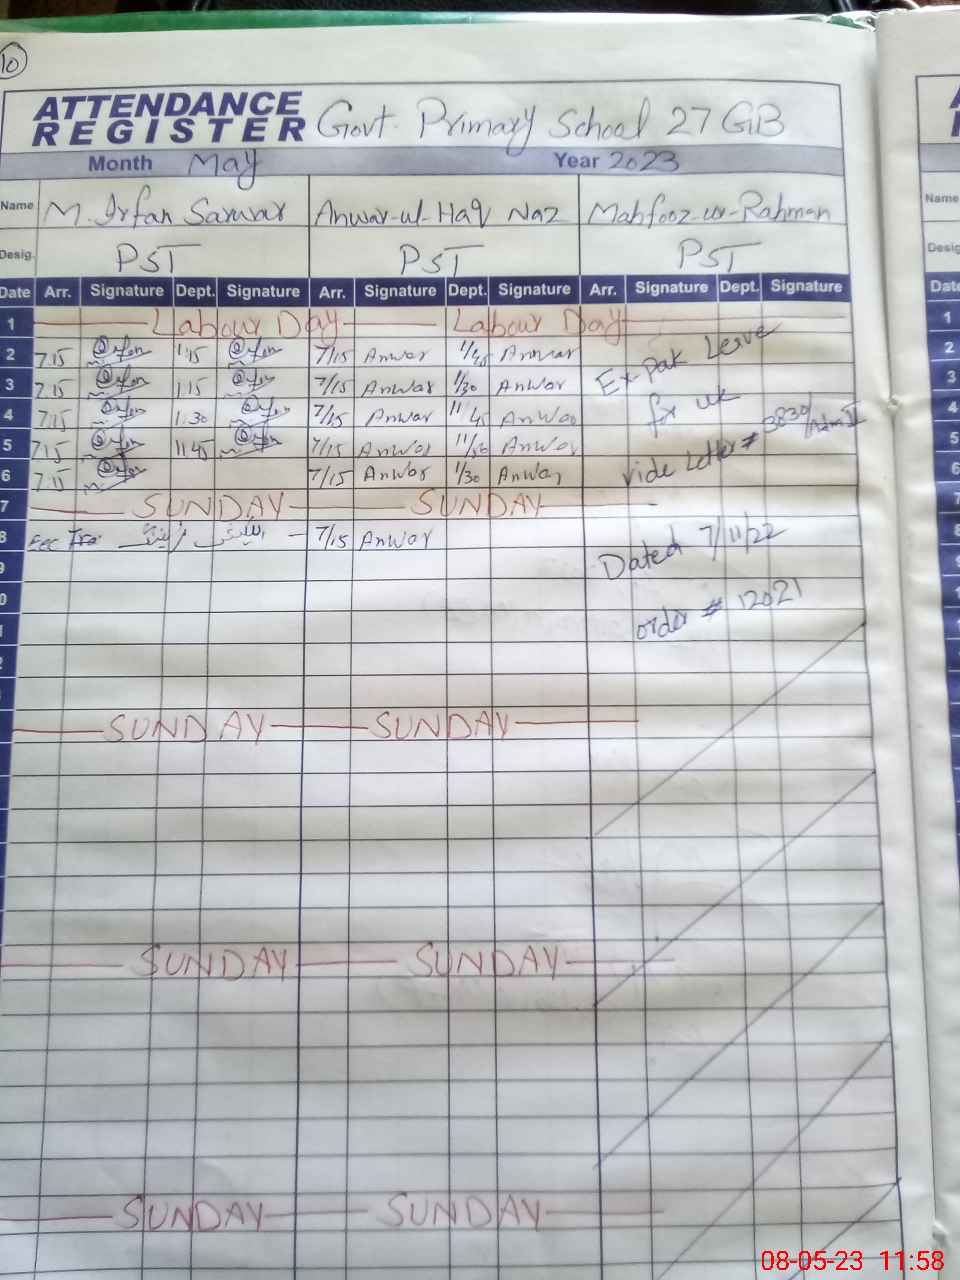 10
ATTENDANCE
REGISTER Govt. Primary School 27 GB
Month May Year 2023
Name M. Irfan Sarwar Anwar-ul-Haq Naz Mahfooz-ur-Rahman
Desig. PST PST PST
Date Arr. Signature Dept. Signature Arr. Signature Dept. Signature Arr. Signature Dept. Signature
1 Labour Day Labour Day
2 7.15 Irfan 1.15 Irfan 7/15 Anwar Anwar
Ex-Pak Leave
3 7.15 Irfan 1.15 Irfan 7/15 Anwar 1/30 Anwar
for UK
4 7.15 Irfan 1.30 Irfan 7/15 Anwar 11/45 Anwar
5 7.15 Irfan 11.45 Irfan 7/15 Anwar 11/50 Anwar
vide Letter # 3830/Adm II
6 7.15 Irfan 7/15 Anwar 1/30 Anwar
7 SUNDAY SUNDAY
8 7/15 Anwar
Dated 7/11/22
9
0
order # 12021
1
2
SUNDAY SUNDAY
SUNDAY SUNDAY
SUNDAY SUNDAY
Name
Desig
Date
1
2
3
4
5
6
7
8
9
08-05-23 11:58